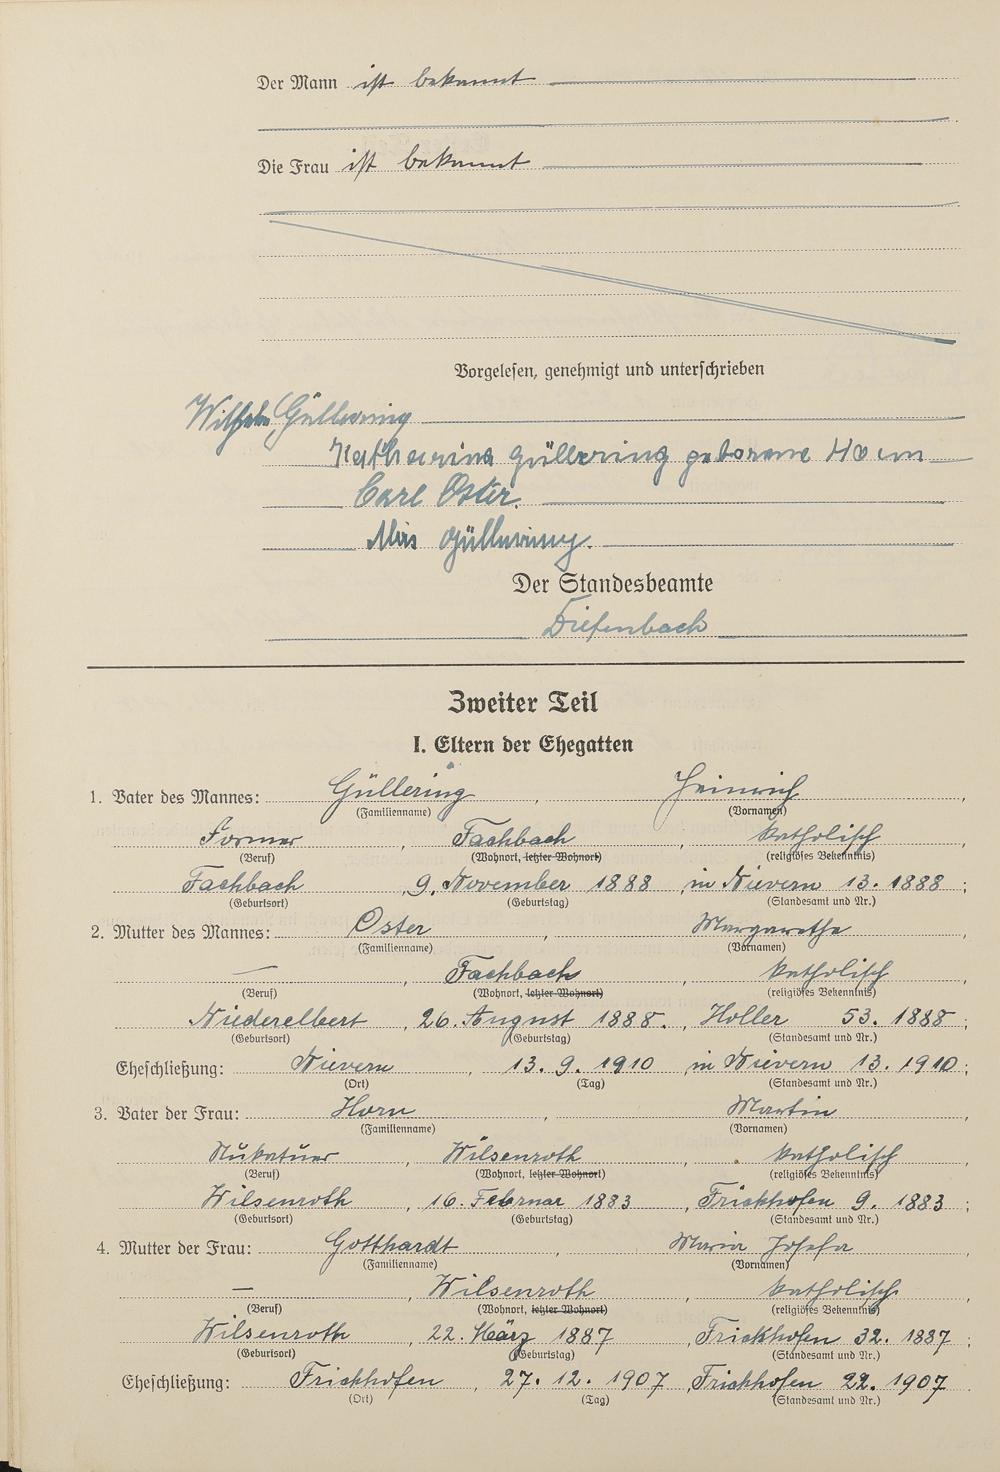 Der Mann ist bekannt
Die Frau ist bekannt
Vorgelesen, genehmigt und unterschrieben
Wilhelm Güllering
Katharina Güllering geborene Horn
Carl Oster.
Güllering.
Der Standesbeamte
Diefenbach
Zweiter Teil
I. Eltern der Ehegatten
1. Vater des Mannes: Güllering, Heinrich,
(Familienname) (Vornamen)
Former, Fachbach, katholisch
(Beruf) (Wohnort, letzter Wohnort) (religiöses Bekenntnis)
Fachbach, 9. November 1888, in Nievern 13. 1888;
(Geburtsort) (Geburtstag) (Standesamt und Nr.)
2. Mutter des Mannes: Oster, Margarethe,
(Familienname) (Vornamen)
—, Fachbach, katholisch
(Beruf) (Wohnort, letzter Wohnort) (religiöses Bekenntnis)
Niederelbert, 26. August 1888., Holler 53. 1888;
(Geburtsort) (Geburtstag) (Standesamt und Nr.)
Eheschließung: Nievern, 13. 9. 1910, in Nievern 13. 1910;
(Ort) (Tag) (Standesamt und Nr.)
3. Vater der Frau: Horn, Martin,
(Familienname) (Vornamen)
Wilsenroth, katholisch
(Beruf) (Wohnort, letzter Wohnort) (religiöses Bekenntnis)
Wilsenroth, 16. Februar 1883, Frickhofen 9. 1883;
(Geburtsort) (Geburtstag) (Standesamt und Nr.)
4. Mutter der Frau: Gotthardt, Maria Josefa,
(Familienname) (Vornamen)
—, Wilsenroth, katholisch
(Beruf) (Wohnort, letzter Wohnort) (religiöses Bekenntnis)
Wilsenroth, 22. März 1887, Frickhofen 32. 1887;
(Geburtsort) (Geburtstag) (Standesamt und Nr.)
Eheschließung: Frickhofen, 27. 12. 1907, Frickhofen 22. 1907
(Ort) (Tag) (Standesamt und Nr.)